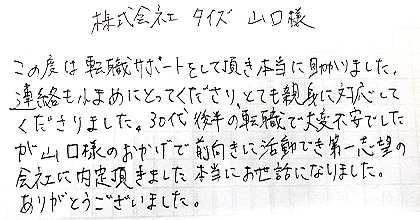 株式会社 タイズ 山口様
この度は転職サポートをして頂き本当に助かりました。
連絡も小まめにとってくださり、とても親身に対応して
くださりました。30代後半の転職で大変不安でした
が山口様のおかげで前向きに活動でき第一志望の
会社に内定頂きました 本当にお世話になりました。
ありがとうございました。